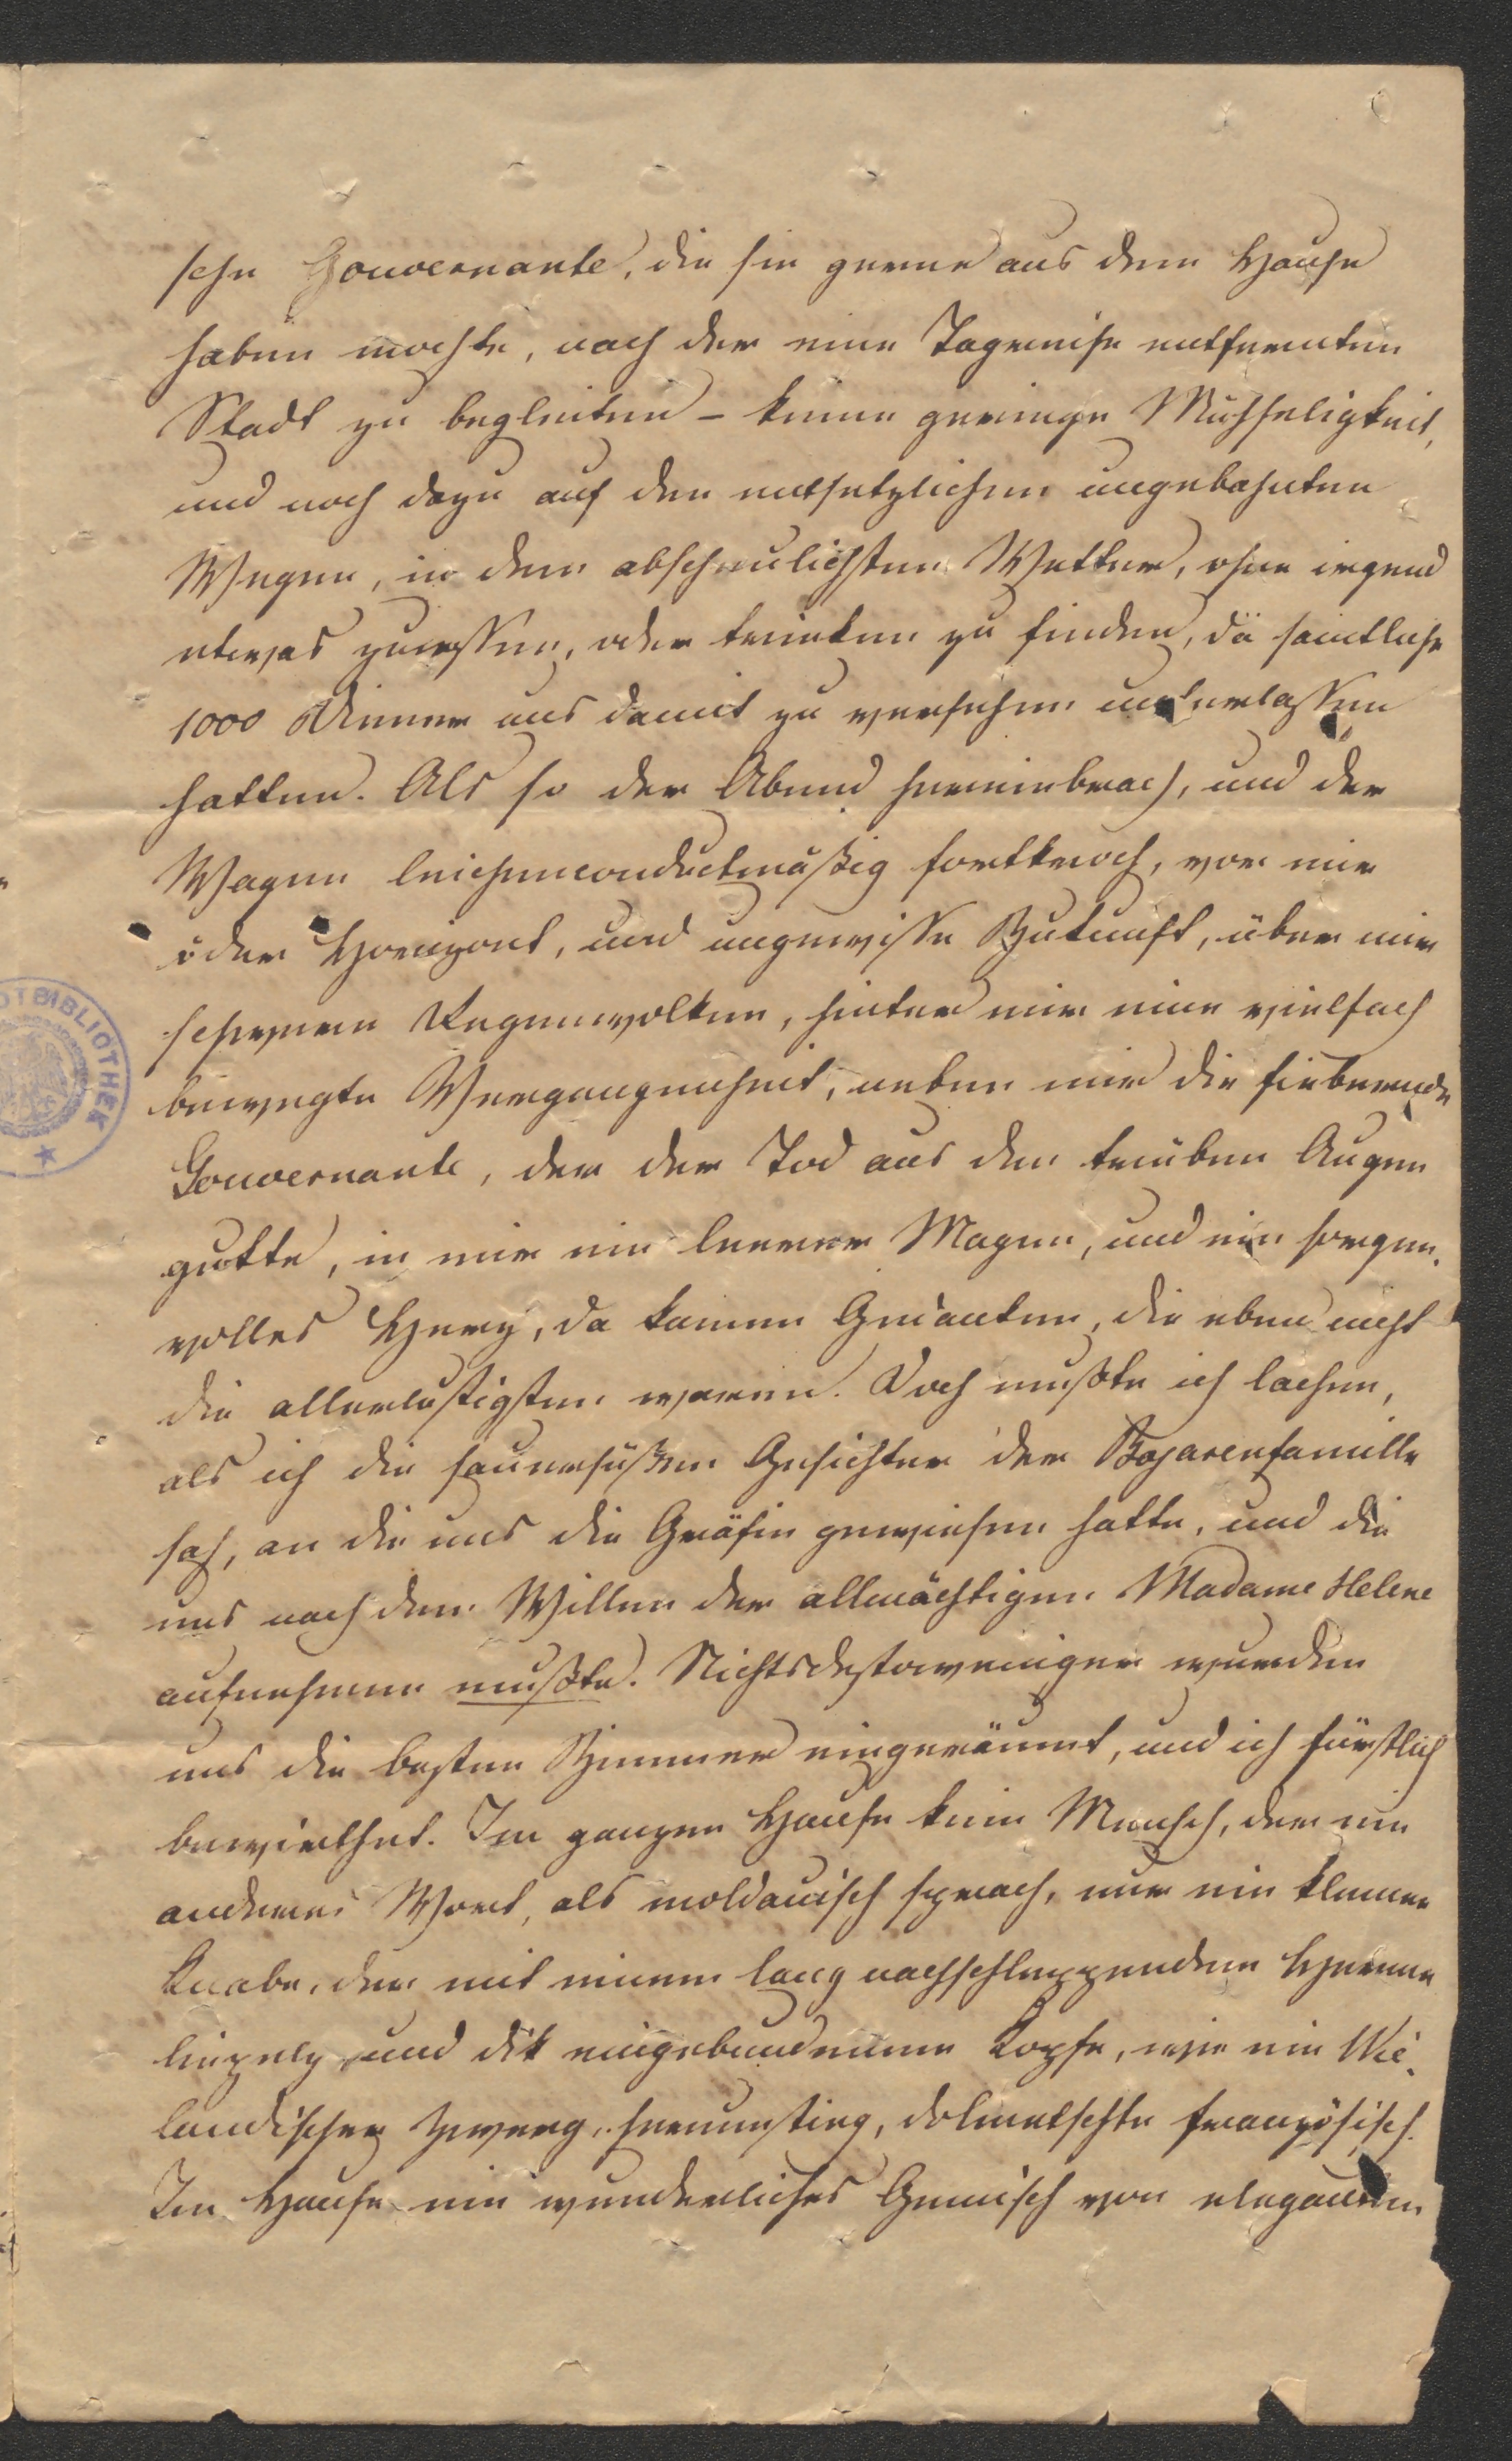 sche Gouvernante, die sie gerne aus dem Hause
haben mochte, nach der eine Tagreise entfernten
Stadt zu begleiten – keine geringe Mühseligkeit,
und noch dazu auf den entsetzlichen ungebahnten
Wegen, in dem abscheulichsten Wetter, ohne irgend
etwas zu essen, oder trinken zu finden, da sämtliche
1000 Diener uns damit zu versehen unterlassen
hatten. Als so der Abend hereinbrach, und der
Wagen leichenconductmäßig fortkroch, vor mir
öder Horizont, und ungewisse Zukunft, über mir
schwere Regenwolken, hinter mir eine vielfach
bewegte Vergangenheit, neben mir die fiebernde
Gouvernante, der der Tod aus den trüben Augen
gukte, in mir ein leerer Magen, und ein sorgen-
volles Herz, da kamen Gedanken, die eben nicht
die allerlustigsten waren. Doch mußte ich lachen,
als ich die sauersüßen Gesichter der Bojarenfamilie
sah, an die uns die Gräfin gewiesen hatte, und die
uns nach dem Willen der allmächtigen Madame Helene
aufnehmen mußte. Nichtsdestoweniger wurden
uns die besten Zimmer eingeräumt, und ich fürstlich
bewirthet. Im ganzen Hause kein Mensch, der ein
anderes Wort, als moldauisch sprach, nur ein kleiner
Knabe, der mit einem lang nachschleppenden Herme-
linpelz und dik eingebundenem Kopfe, wie ein Wie-
landischer Zwerg, herumstieg, dolmetschte französisch.
Im Hause ein wunderliches Gemisch von eleganten
BIBLIOTHEK